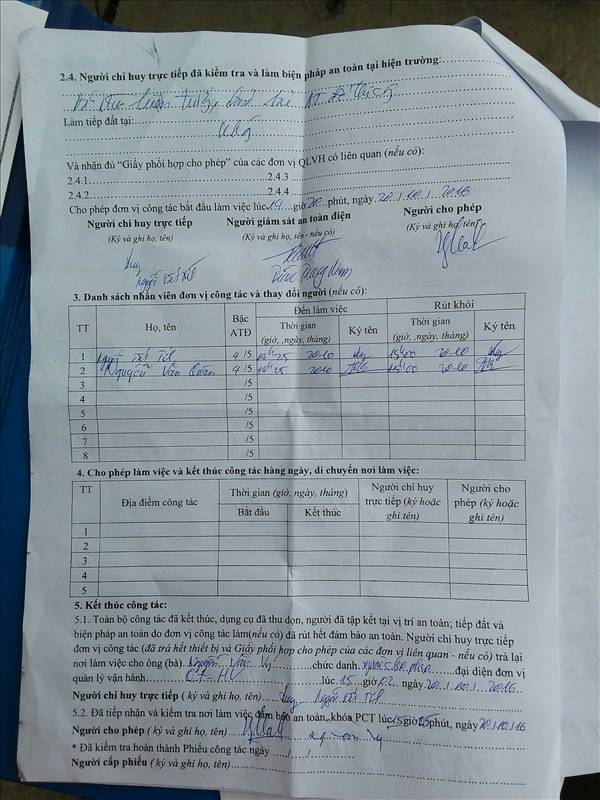 2.4. Người chỉ huy trực tiếp đã kiểm tra và làm biện pháp an toàn tại hiện trường:
Làm tiếp đất tại:
Và nhận đủ “Giấy phối hợp cho phép” của các đơn vị QLVH có liên quan (nếu có):
2.4.1 2.4.3
2.4.2 2.4.4
Cho phép đơn vị công tác bắt đầu làm việc lúc giờ phút, ngày 20 / 10 / 2016
Người chỉ huy trực tiếp Người giám sát an toàn điện Người cho phép
(Ký và ghi họ, tên) (Ký và ghi họ, tên - nếu có) (Ký và ghi họ, tên)
3. Danh sách nhân viên đơn vị công tác và thay đổi người (nếu có):
TT Họ, tên Bậc ATĐ Đến làm việc Rút khỏi
Thời gian (giờ, ,ngày, tháng) Ký tên Thời gian (giờ, ,ngày, tháng) Ký tên
1 4 /5 25 20.10 15h00 20.10
2 Nguyễn Văn 4 /5 25 20.10 15h00 20.10
3 /5
4 /5
5 /5
6 /5
7 /5
8 /5
4. Cho phép làm việc và kết thúc công tác hàng ngày, di chuyển nơi làm việc:
TT Địa điểm công tác Thời gian (giờ, ngày, tháng) Người chỉ huy trực tiếp (ký hoặc ghi tên) Người cho phép (ký hoặc ghi tên)
Bắt đầu Kết thúc
1
2
3
4
5
5. Kết thúc công tác:
5.1. Toàn bộ công tác đã kết thúc, dụng cụ đã thu dọn, người đã tập kết tại vị trí an toàn; tiếp đất và
biện pháp an toàn do đơn vị công tác làm(nếu có) đã rút hết đảm bảo an toàn. Người chỉ huy trực tiếp
đơn vị công tác (đã trả hết thiết bị và Giấy phối hợp cho phép của các đơn vị liên quan - nếu có) trả lại
nơi làm việc cho ông (bà). Nguyễn Văn chức danh người cho phép đại diện đơn vị
quản lý vận hành lúc 15 giờ 02 ngày 20 / 10 / 2016
Người chỉ huy trực tiếp ( ký và ghi họ, tên)
5.2. Đã tiếp nhận và kiểm tra nơi làm việc đảm bảo an toàn, khóa PCT lúc 15 giờ 05 phút, ngày 20/10/16
Người cho phép ( ký và ghi họ, tên)
* Đã kiểm tra hoàn thành Phiếu công tác ngày / /
Người cấp phiếu ( ký và ghi họ, tên)